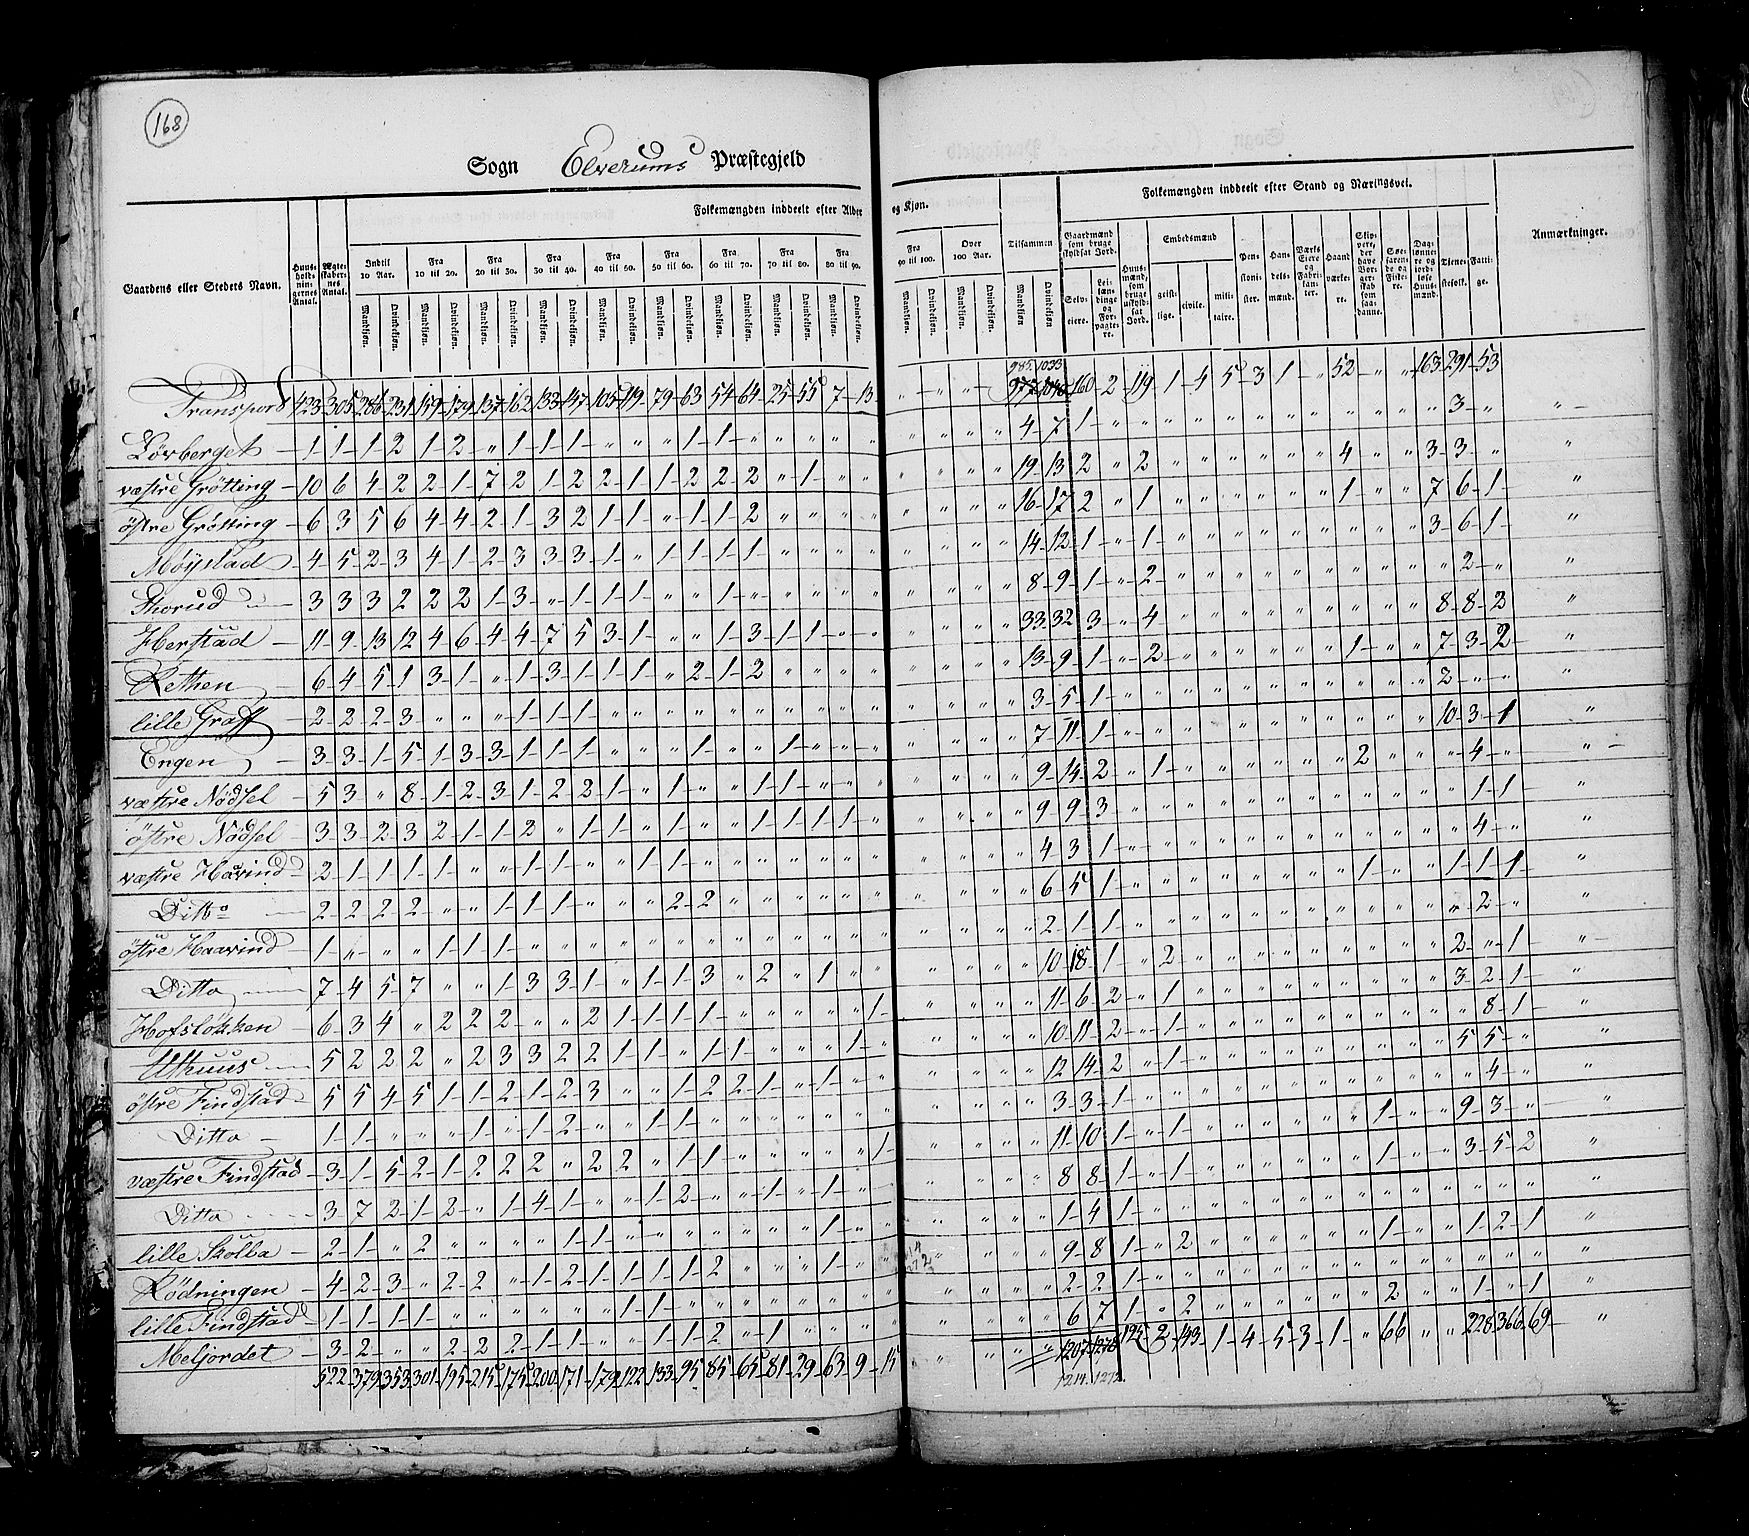 168
Sogn Elverums Præstegjeld
Folkemængden inddeelt efter Alder
og Kjøn.
Folkemængden inddeelt efter Stand og Næringsvei.
Gaardens eller Stedets Navn.
Huusholdningernes Antal.
Ægteskabernes Antal.
Indtil 10 Aar.
Fra 10 til 20.
Fra 20 til 30.
Fra 30 til 40.
Fra 40 til 50.
Fra 50 til 60.
Fra 60 til 70.
Fra 70 til 80.
Fra 80 til 90.
Fra 90 til 100.
Over 100 Aar.
Tilsammen
Mandkjøn. Qvindekjøn.
Gaardmænd som bruge skyldsat Jord.
Selveiere.
Leilændinge og Forpagtere.
Huusmænd, som bruge uskyldsat Jord.
Embedsmænd
geistlige. civile. militaire.
Pensionister.
Handelsmænd.
Værks Eiere og Fabrikanter.
Haandværkere.
Skippere, der have Borgerskab som saadanne.
Søefarende og Fiskere.
Daglønnere og jordløse Huusmænd.
Tienestefolk.
Fattige.
Anmærkninger.
985. 1033
Transport 423 305 286 231 159 179 137 162 133 137 105 119 79 63 54 64 25 55 7 13 " " " " 160 2 119 1 4 5 3 1 " 52 " " 163 291 53
Lörberget 1 1 1 2 1 2 " 1 1 1 " " " 1 1 " " " " " " " " " 4 7 1 " " " " " " " " " " " " 3 "
væstre Grötting 10 6 4 2 2 1 7 2 1 2 2 1 1 2 2 2 " 1 " " " " " " 19 13 2 " 2 " " " " " " 4 " " 3 3 "
östre Grötting 6 3 5 6 4 4 2 1 3 2 1 1 " 1 1 2 " " " " " " " " 16 17 2 " 1 " " " " " " 1 " " 7 6 1
Möystad 4 5 2 3 4 1 2 3 3 3 1 " 1 1 1 1 " " " " " " " " 14 12 1 " 1 " " " " " " " " " 3 6 1
Thorud 3 3 3 2 2 2 1 3 " 1 1 1 " " 1 " " " " " " " " " 8 9 1 " 2 " " " " " " " " " " 2 "
Herstad 11 9 13 12 4 6 4 4 7 5 3 1 " " 1 3 1 1 " " " " " " 33 32 3 " 4 " " " " " " " " " 8 8 2
Rethen 6 4 5 1 3 1 " 1 3 1 1 1 " 2 1 2 " " " " " " " " 13 9 1 " 2 " " " " " " 1 " " 7 3 2
lille Graff 2 2 2 3 " " " 1 1 1 " " " " " " " " " " " " " " 3 5 1 " " " " " " " " " " " 2 " "
Engen 3 3 1 5 1 3 3 1 1 1 " " " 1 " " 1 " " " " " " " 7 11 1 " " " " " " " " " " " 10 3 1
væstre Nödsel 5 3 " 8 1 2 3 1 2 2 1 " 1 " " 1 1 " " " " " " " 9 14 2 " 1 " " " " " " 2 " " " 4 "
östre Nödsel 3 3 2 3 2 1 1 2 " 1 1 " 1 " " 1 1 1 1 " " " " " 9 9 3 " " " " " " " " " " " " 1 1
væstre Haavind 2 1 1 1 1 " " 1 1 " " 1 1 " " " " " " " " " " " 4 3 1 " " " " " " " " " " " " 4 "
Ditto 2 2 2 2 " " 1 1 1 " " " 2 2 " " " " " " " " " " 6 5 1 " " " " " " " " 1 " " 1 1 1
östre Haavind 1 " " " 1 1 1 " " " " " " " " " " " " " " " " " 2 1 1 " " " " " " " " " " " " 2 "
Ditto 7 4 5 7 " " 1 3 3 1 " 1 1 3 " 2 " 1 " " " " " " 10 18 1 " 2 " " " " " " " " " 2 " 1
Hofslökken 6 3 4 " 2 2 2 " " 2 1 1 1 1 " " " " " 1 " " " " 11 6 2 " 1 " " " " " " " " " 3 2 1
Uthuus 5 2 2 2 " 2 3 3 2 2 1 1 " 1 1 " " " 1 " " " " " 10 11 2 " 1 " " " " " " " " " " 8 1
östre Findstad 5 5 4 5 1 1 2 1 2 3 " " 1 2 2 1 " 1 " " " " " " 12 14 2 " 1 " " " " " " " " " 5 5 "
Ditto 1 1 " " " 1 " 1 2 " " 1 1 " " " " " " " " " " " 3 3 1 " " " " " " " " " " " " 4 "
væstre Findstad 3 1 5 2 1 2 2 2 " 2 2 " 1 1 " " " " " 1 " " " " 11 10 1 " 1 " " " " " " 1 " " 9 3 "
Ditto 3 7 2 1 2 " 1 4 1 " " 1 2 " " 1 " 1 " " " " " " 8 8 1 " 1 " " " " " " 1 " " 3 5 2
lille Skolla 2 1 " 2 " " " " 1 1 " " " " " " " 1 " " " " " " 1 4 1 " " " " " " " " " " " " " "
Rödningen 4 2 3 " 2 2 " 1 2 1 1 1 1 2 " " " 1 " " " " " " 9 8 1 " 2 " " " " " " 1 " " 1 2 1
lille Findstad 1 1 1 1 " " " " " " 1 1 " " " " " " " " " " " " 2 2 1 " " " " " " " " " " " " " "
Meljordet 3 2 " " 2 2 2 1 1 " " 1 1 2 " 1 " " " " " " " " 6 7 1 " 2 " " " " " " 2 " " 1 " 1
522 379 353 301 195 215 175 200 171 179 122 133 95 85 65 81 29 63 9 15 " " " " 1207 1278 195 2 143 1 4 5 3 1 " 66 " " 228 366 69
1214. 1272